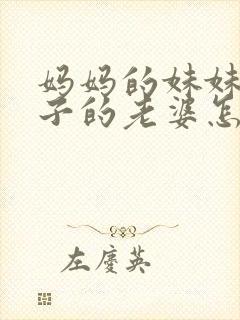 妈妈的妹妹
子的老婆怎
左慶英